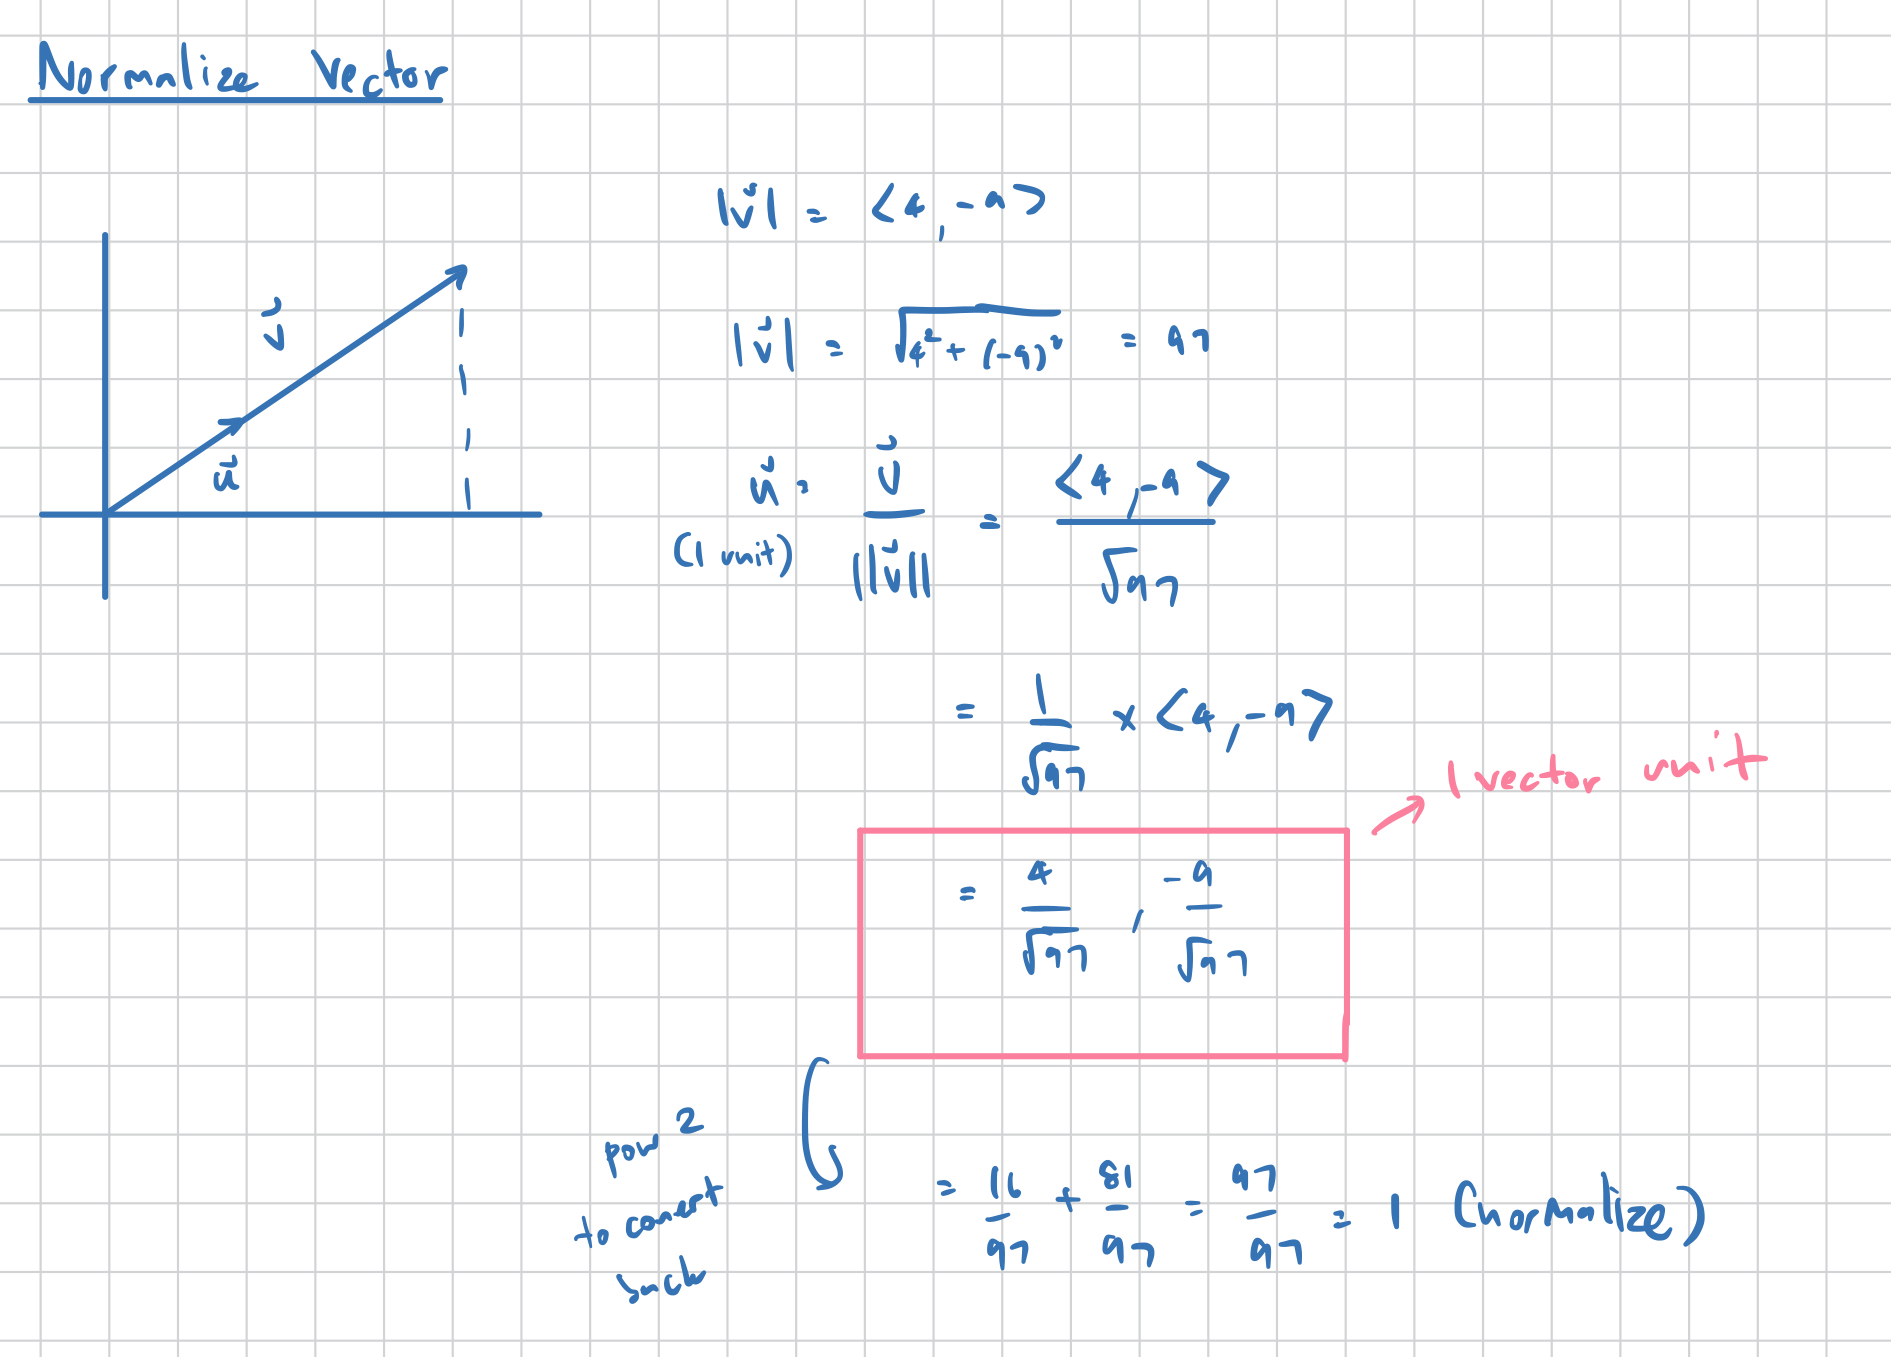 Normalize Vector
|v⃗| = <4, -9>
|v⃗| = √4² + (-9)² = 97
v⃗
u⃗
u⃗ = v⃗ / ||v⃗|| = <4, -9> / √97
(1 unit)
= 1/√97 × <4, -9>
1 vector unit
= 4/√97 , -9/√97
pow 2
to convert
back
= 16/97 + 81/97 = 97/97 = 1 (normalize)